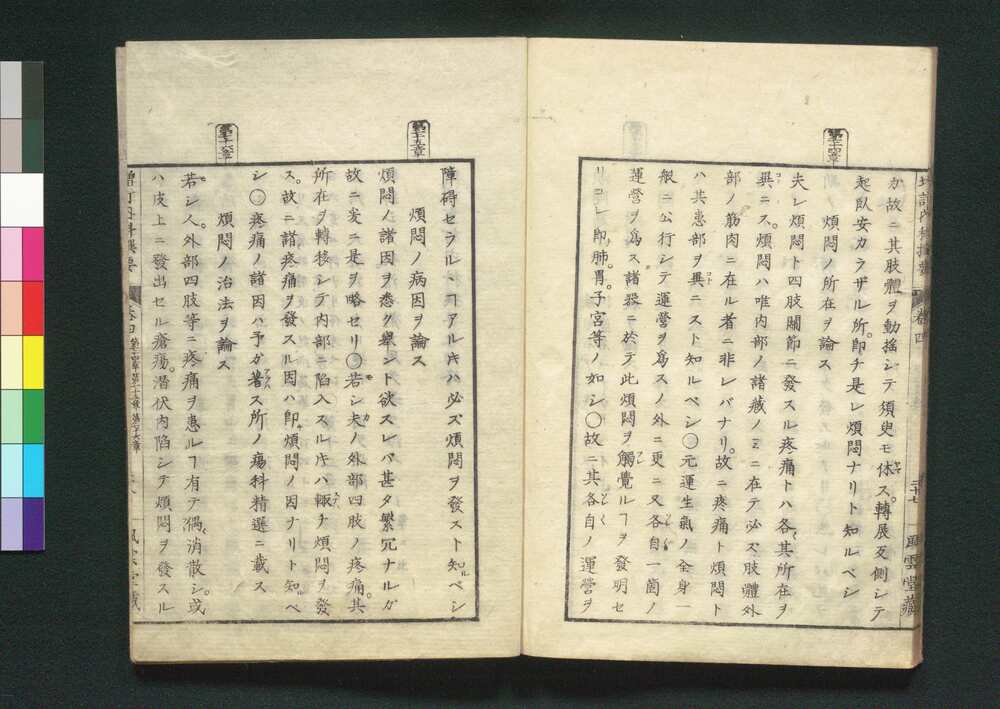 増訂内科撰要 卷四 三十七 風雲堂藏
第二十四章
カ故ニ其肢體ヲ動揺シテ須臾モ体ス。轉展反側シテ
起臥安カラザル所。即チ是レ煩悶ナリト知ルベシ
煩悶ノ所在ヲ論ス
夫レ煩悶ト四肢關節ニ發スル疼痛トハ各其所在ヲ
異ニス。煩悶ハ唯内部ノ諸藏ノミニ在テ必ズ肢體外
部ノ筋肉ニ在ル者ニ非レバナリ。故ニ疼痛ト煩悶ト
ハ其患部ヲ異ニスト知ルベシ〇元運生氣ノ全身一
般ニ公行シテ運營ヲ爲スノ外ニ更ニ又各自一箇ノ
運營ヲ爲ス諸器ニ於テ此煩悶ヲ觸覺ルヿヲ發明セ
リ 即肺。胃。子宮等ノ如シ〇故ニ其各自ノ運營ヲ
第二十五章
障碍セラルヽヿアルキハ必ズ煩悶ヲ發スト知ルベシ
煩悶ノ病因ヲ論ス
煩悶ノ諸因ヲ悉ク舉ント欲スレバ甚タ繁冗ナルガ
故ニ爰ニ是ヲ略セリ〇若シ夫ノ外部四肢ノ疼痛。其
所在ヲ轉移シテ内部ニ陷入スル片ハ輙チ煩悶ヲ發
ス。故ニ諸疼痛ヲ發スル因ハ即煩悶ノ因ナリト知ベ
シ〇疼痛ノ諸因ハ予ガ著ス所ノ瘍科精選ニ載ス
第二十六章
煩悶ノ治法ヲ論ス
若シ人。外部四肢等ニ疼痛ヲ患ルヿ有テ偶消散シ。或
ハ皮上ニ發出セル瘡瘍。潜伏内陷シテ煩悶ヲ發スル
増訂内科撰要 卷四 第二十四章 第二十五章 第二十六章